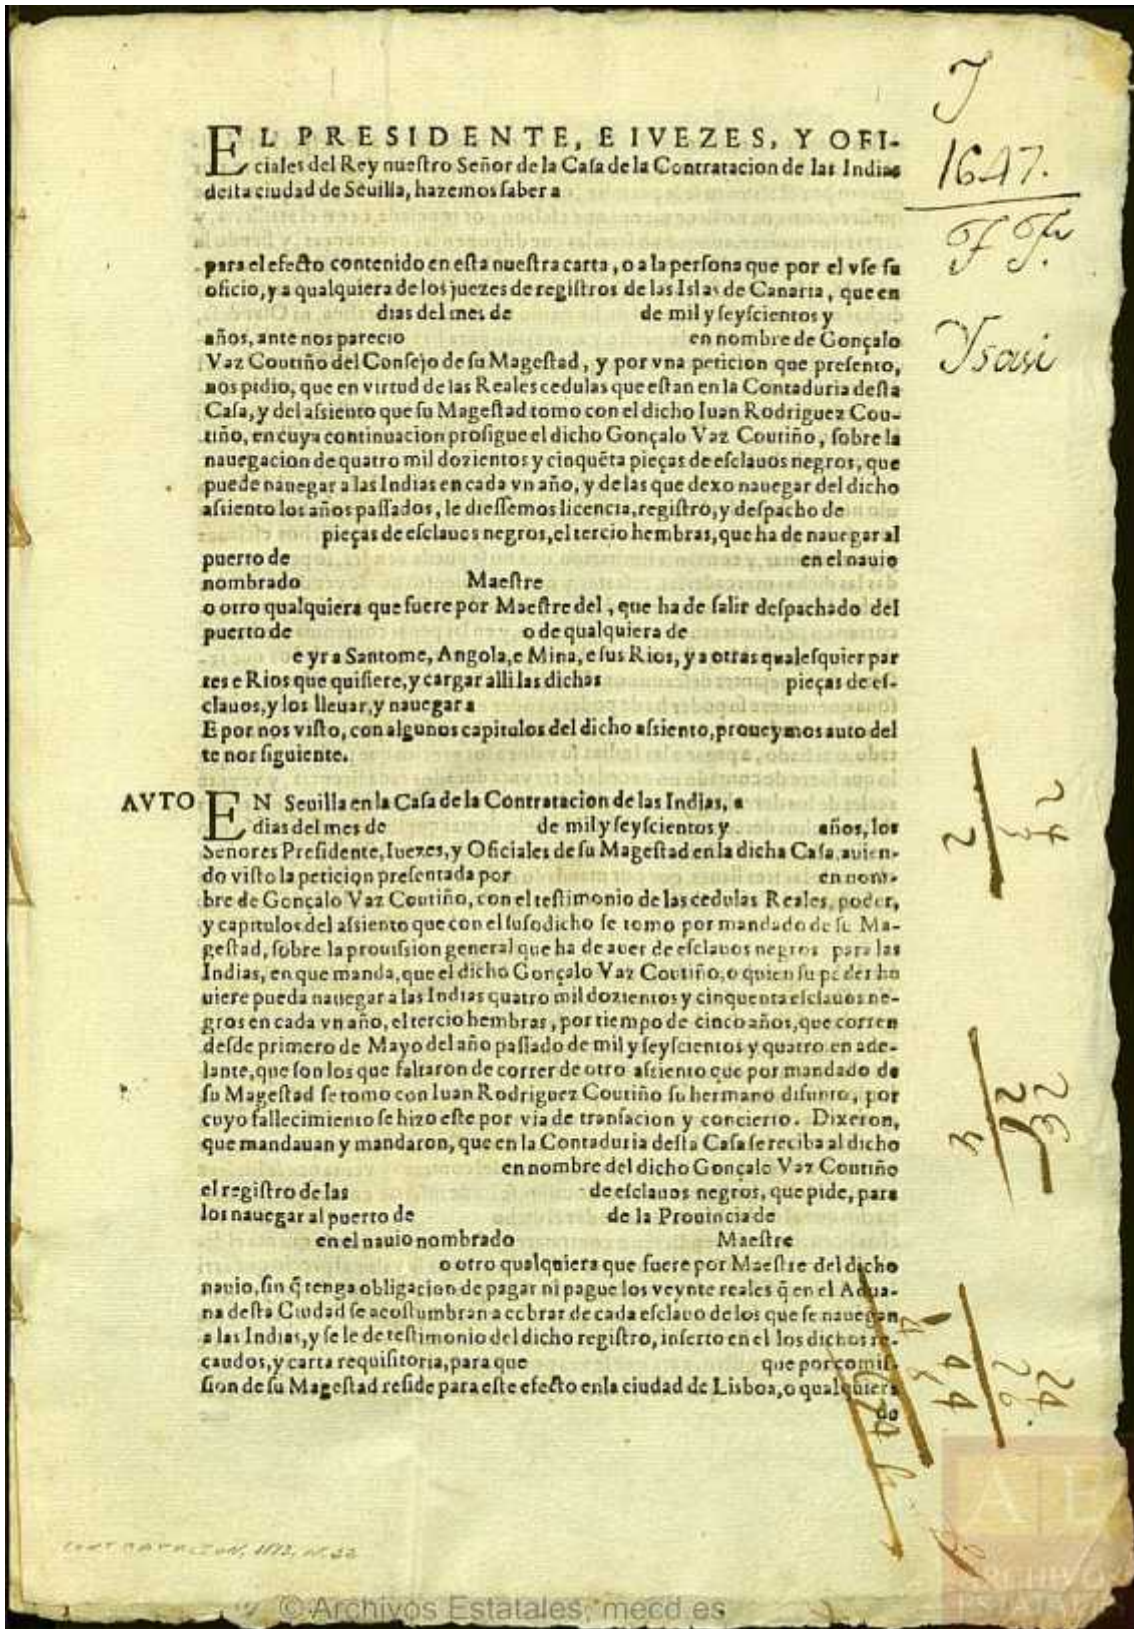 EL PRESIDENTE, E IVEZES, Y OFI-
ciales del Rey nuestro Señor de la Casa de la Contratacion de las Indias
desta ciudad de Seuilla, hazemos saber a
para el efecto contenido en esta nuestra carta, o a la persona que por el vse su
oficio, y a qualquiera de los juezes de registros de las Islas de Canaria, que en
dias del mes de de mil y seyscientos y
años, ante nos parecio en nombre de Gonçalo
Vaz Coutiño del Consejo de su Magestad, y por vna peticion que presento,
nos pidio, que en virtud de las Reales cedulas que estan en la Contaduria desta
Casa, y del assiento que su Magestad tomo con el dicho Iuan Rodriguez Cou-
tiño, en cuya continuacion prosigue el dicho Gonçalo Vaz Coutiño, sobre la
nauegacion de quatro mil dozientos y cinquẽta pieças de esclauos negros, que
puede nauegar a las Indias en cada vn año, y de las que dexo nauegar del dicho
assiento los años passados, le diessemos licencia, registro, y despacho de
pieças de esclauos negros, el tercio hembras, que ha de nauegar al
puerto de en el nauio
nombrado Maestre
o otro qualquiera que fuere por Maestre del, que ha de salir despachado del
puerto de o de qualquiera de
e yr a Santome, Angola, e Mina, e sus Rios, y a otras qualesquier par
tes e Rios que quisiere, y cargar alli las dichas pieças de es-
clauos, y los lleuar, y nauegar a
E por nos visto, con algunos capitulos del dicho assiento, proueymos auto del
tenor siguiente.
AVTO EN Seuilla en la Casa de la Contratacion de las Indias, a
dias del mes de de mil y seyscientos y años, los
Señores Presidente, Iuezes, y Oficiales de su Magestad en la dicha Casa, auien-
do visto la peticion presentada por en nom-
bre de Gonçalo Vaz Coutiño, con el testimonio de las cedulas Reales, poder,
y capitulos del assiento que con el susodicho se tomo por mandado de su Ma-
gestad, sobre la prouission general que ha de auer de esclauos negros para las
Indias, en que manda, que el dicho Gonçalo Vaz Coutiño, o quien su poder hu
uiere pueda nauegar a las Indias quatro mil dozientos y cinquenta esclauos ne-
gros en cada vn año, el tercio hembras, por tiempo de cinco años, que corren
desde primero de Mayo del año passado de mil y seyscientos y quatro en ade-
lante, que son los que faltaron de correr de otro assiento que por mandado de
su Magestad se tomo con Iuan Rodriguez Coutiño su hermano difunto, por
cuyo fallecimiento se hizo este por via de transacion y concierto. Dixeron,
que mandauan y mandaron, que en la Contaduria desta Casa se reciba al dicho
en nombre del dicho Gonçalo Vaz Coutiño
el registro de las de esclauos negros, que pide, para
los nauegar al puerto de de la Prouincia de
en el nauio nombrado Maestre
o otro qualquiera que fuere por Maestre del dicho
nauio, sin q̃ tenga obligacion de pagar ni pague los veynte reales q̃ en el Adua-
na desta Ciudad se acostumbran a cobrar de cada esclauo de los que se nauegan
a las Indias, y se le de testimonio del dicho registro, inserto en el los dichos re-
caudos, y carta requisitoria, para que que por comis-
sion de su Magestad reside para este efecto en la ciudad de Lisboa, o qualquiera
de
1647.
Ysasi
CONTRATACION,
© Archivos Estatales, mecd.es
A E
ARCHIVOS
ESTATALES